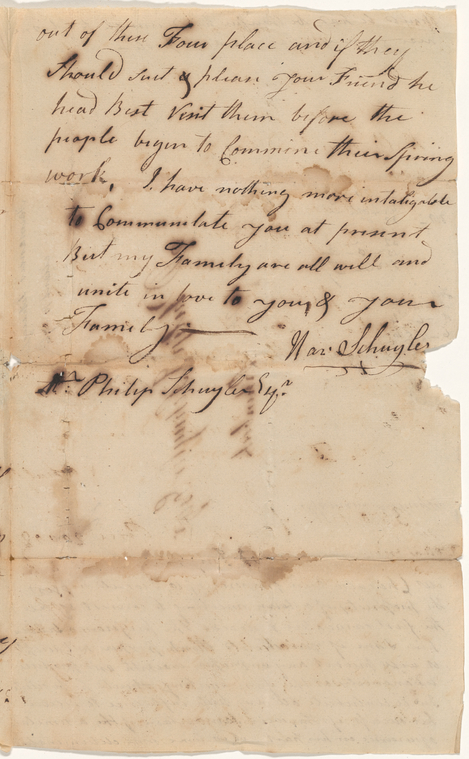 out of these Four place and if they
Should suit & please your Friend he
head Best Visit them before the
people begin to Commence their Spring
work, I have nothing more intaligable
to Communicate you at present
But my Family are all well and
unite in love to you & your
Family
Har Schuyler
Mr Philip Schuyler Esqr